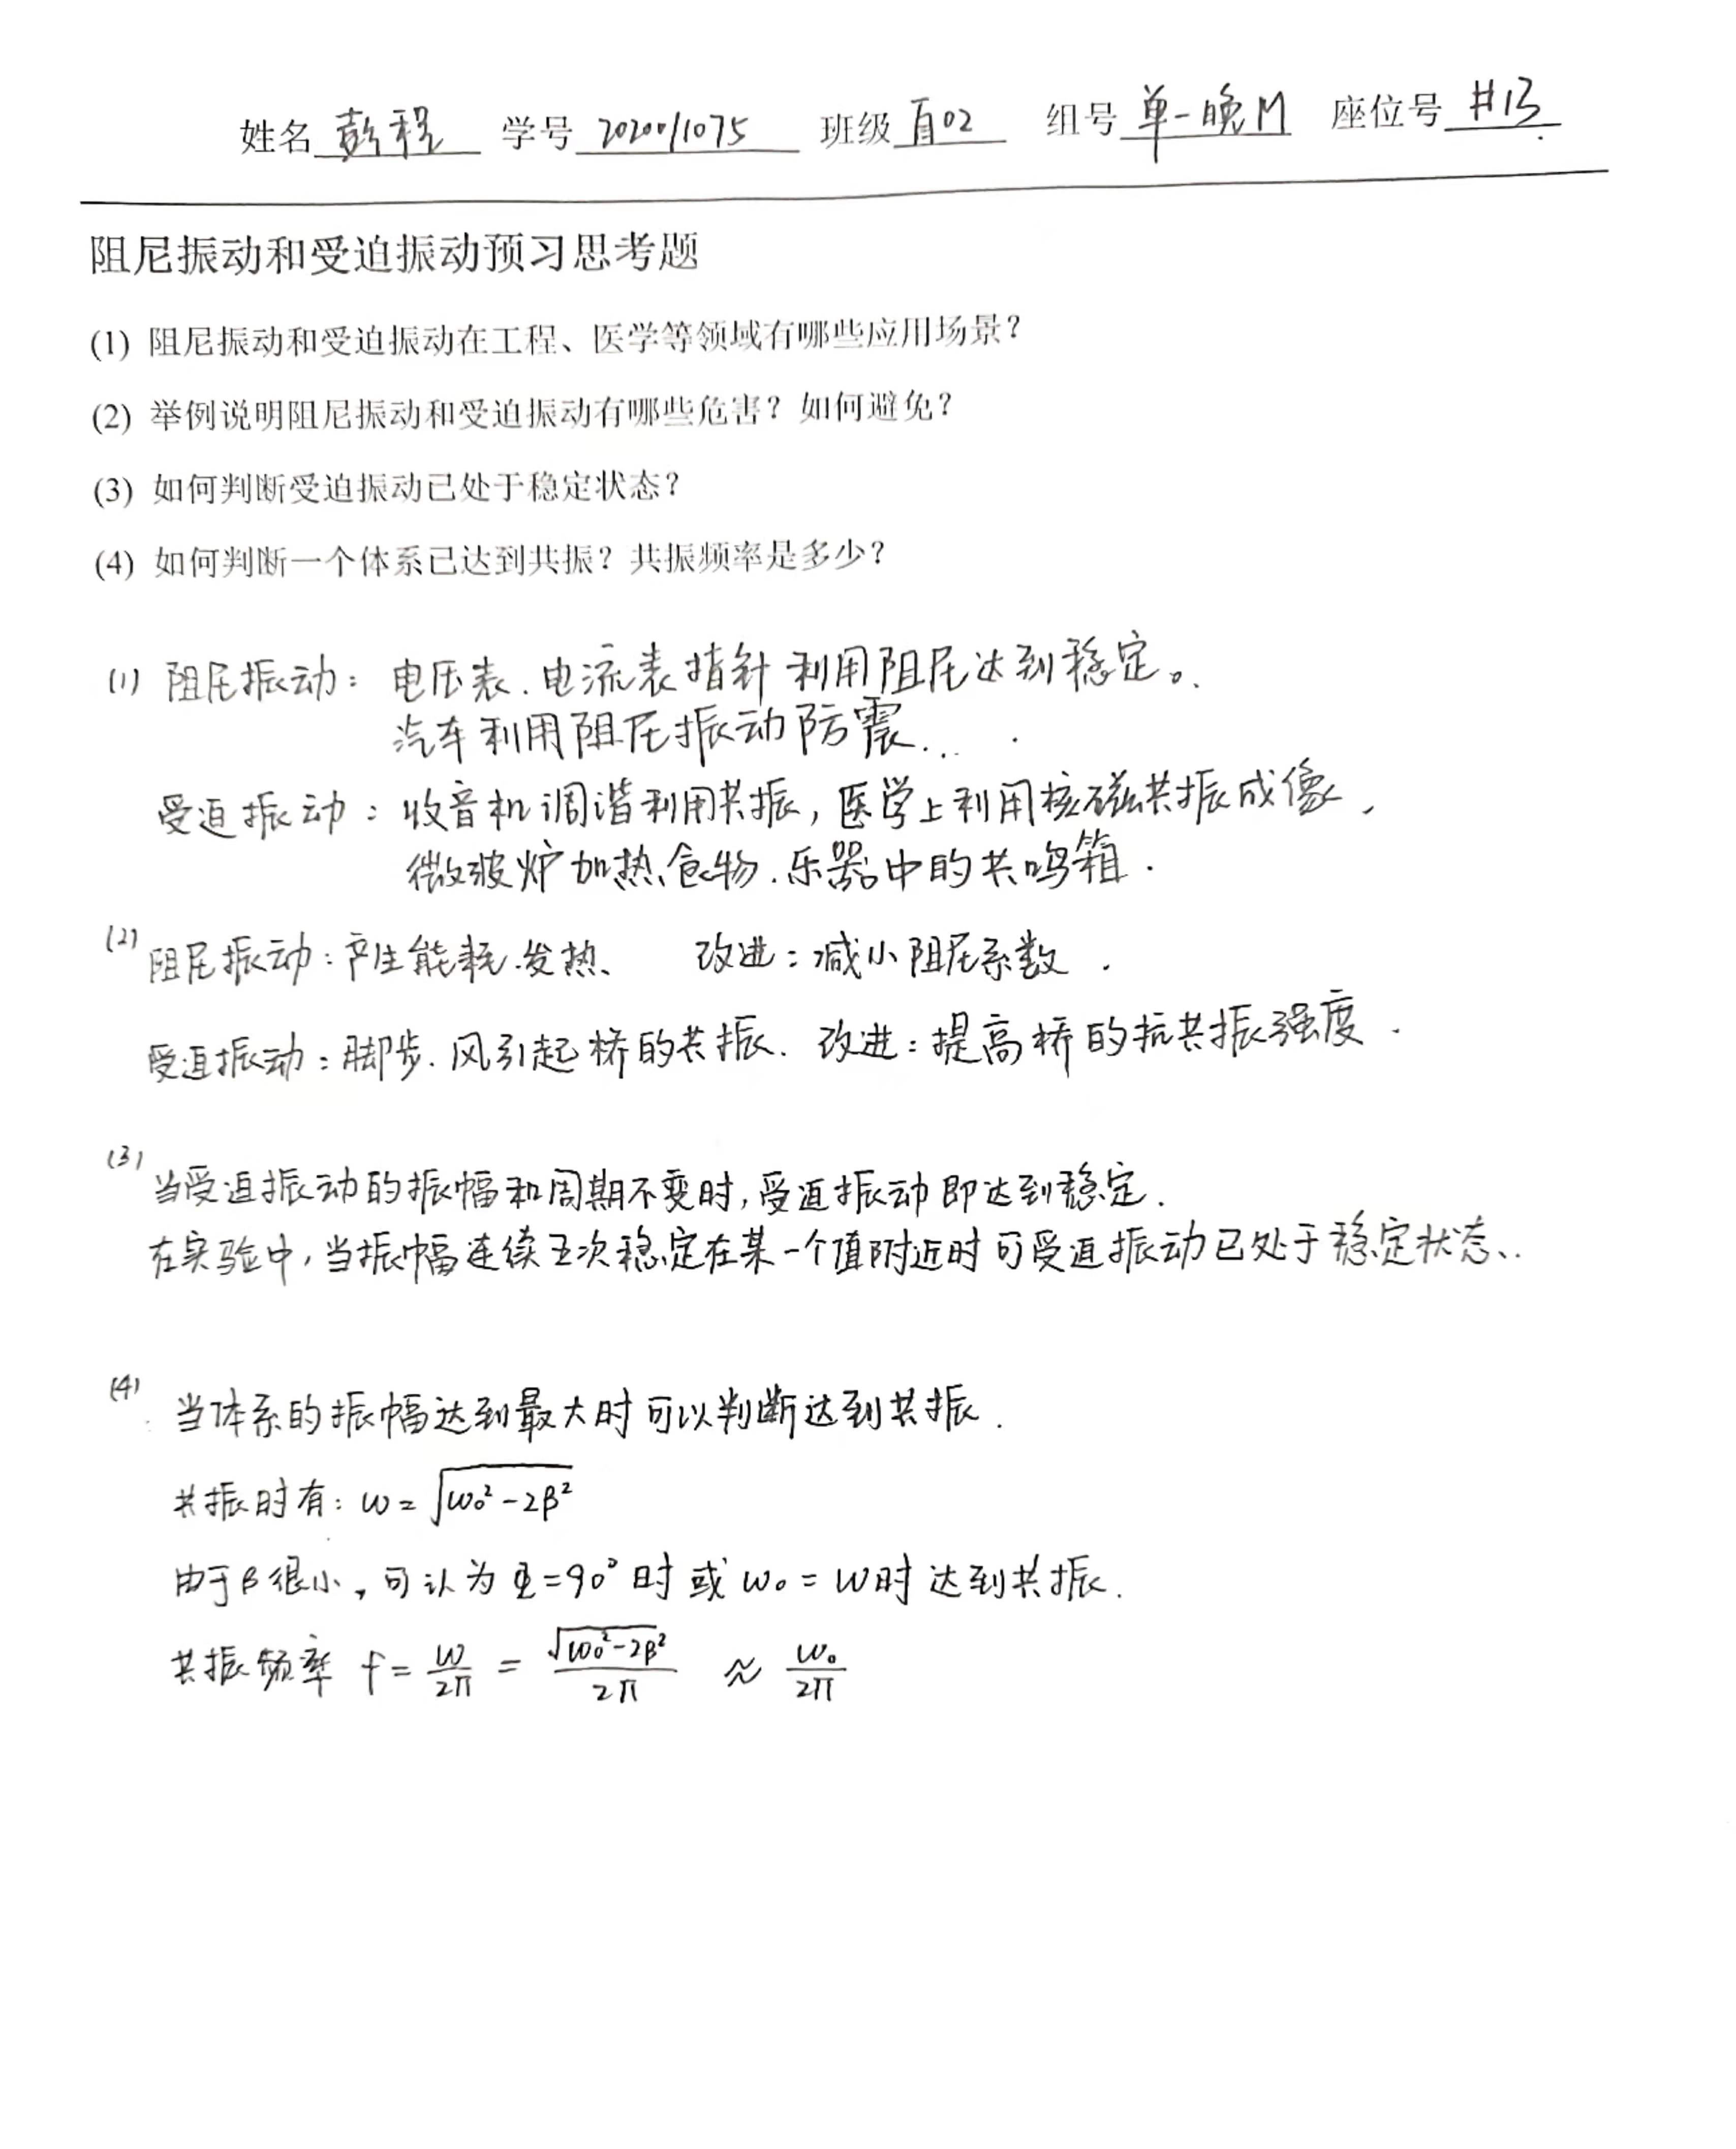 姓名 彭程 学号 2020011075 班级 自02 组号 单一晚M 座位号 #13
阻尼振动和受迫振动预习思考题
(1) 阻尼振动和受迫振动在工程、医学等领域有哪些应用场景？
(2) 举例说明阻尼振动和受迫振动有哪些危害？如何避免？
(3) 如何判断受迫振动已处于稳定状态？
(4) 如何判断一个体系已达到共振？共振频率是多少？
(1) 阻尼振动：电压表.电流表指针利用阻尼达到稳定。
汽车利用阻尼振动防震...
受迫振动：收音机调谐利用共振，医学上利用核磁共振成像，
微波炉加热食物.乐器中的共鸣箱.
(2) 阻尼振动：产生能耗.发热、 改进：减小阻尼系数.
受迫振动：脚步.风引起桥的共振. 改进：提高桥的抗共振强度.
(3) 当受迫振动的振幅和周期不变时，受迫振动即达到稳定.
在实验中，当振幅连续五次稳定在某一个值附近时可受迫振动已处于稳定状态..
(4) 当体系的振幅达到最大时可以判断达到共振.
共振时有：ω=√(ω₀²-2β²)
由于β很小，可认为Φ=90°时或ω₀=ω时达到共振.
共振频率 f=ω/2π=√(ω₀²-2β²)/2π≈ω₀/2π